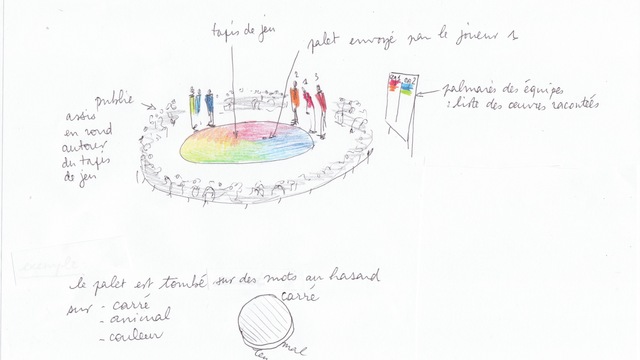 tapis de jeu
palet envoyé par le joueur 1
publie
assis
en rond
autour
du tapis
de jeu
2 1 3
palmarès des équipes
: liste des œuvres racontées
exemple
le palet est tombé sur des mots au hasard
sur - carré
- animal
- couleur
carré
mal